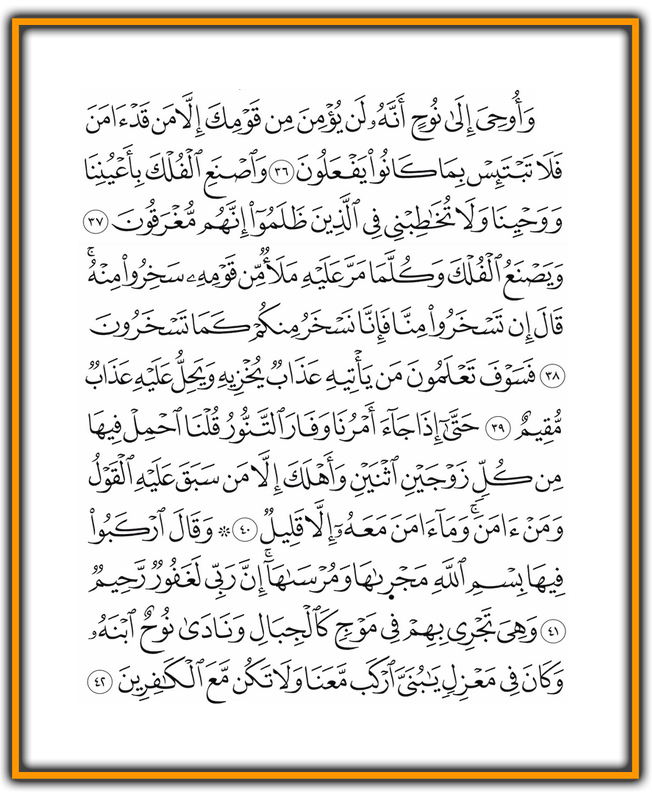 وَأُوحِيَ إِلَىٰ نُوحٍ أَنَّهُۥ لَن يُؤْمِنَ مِن قَوْمِكَ إِلَّا مَن قَدْ ءَامَنَ
فَلَا تَبْتَئِسْ بِمَا كَانُوا۟ يَفْعَلُونَ ٣٦ وَٱصْنَعِ ٱلْفُلْكَ بِأَعْيُنِنَا
وَوَحْيِنَا وَلَا تُخَـٰطِبْنِى فِى ٱلَّذِينَ ظَلَمُوٓا۟ إِنَّهُم مُّغْرَقُونَ ٣٧
وَيَصْنَعُ ٱلْفُلْكَ وَكُلَّمَا مَرَّ عَلَيْهِ مَلَأٌ مِّن قَوْمِهِۦ سَخِرُوا۟ مِنْهُ ۚ
قَالَ إِن تَسْخَرُوا۟ مِنَّا فَإِنَّا نَسْخَرُ مِنكُمْ كَمَا تَسْخَرُونَ
٣٨ فَسَوْفَ تَعْلَمُونَ مَن يَأْتِيهِ عَذَابٌ يُخْزِيهِ وَيَحِلُّ عَلَيْهِ عَذَابٌ
مُّقِيمٌ ٣٩ حَتَّىٰٓ إِذَا جَآءَ أَمْرُنَا وَفَارَ ٱلتَّنُّورُ قُلْنَا ٱحْمِلْ فِيهَا
مِن كُلٍّ زَوْجَيْنِ ٱثْنَيْنِ وَأَهْلَكَ إِلَّا مَن سَبَقَ عَلَيْهِ ٱلْقَوْلُ
وَمَنْ ءَامَنَ ۚ وَمَآ ءَامَنَ مَعَهُۥٓ إِلَّا قَلِيلٌ ٤٠ ۞ وَقَالَ ٱرْكَبُوا۟
فِيهَا بِسْمِ ٱللَّهِ مَجْر۪ىٰهَا وَمُرْسَىٰهَآ ۚ إِنَّ رَبِّى لَغَفُورٌ رَّحِيمٌ
٤١ وَهِىَ تَجْرِى بِهِمْ فِى مَوْجٍ كَٱلْجِبَالِ وَنَادَىٰ نُوحٌ ٱبْنَهُۥ
وَكَانَ فِى مَعْزِلٍ يَـٰبُنَىَّ ٱرْكَب مَّعَنَا وَلَا تَكُن مَّعَ ٱلْكَـٰفِرِينَ ٤٢